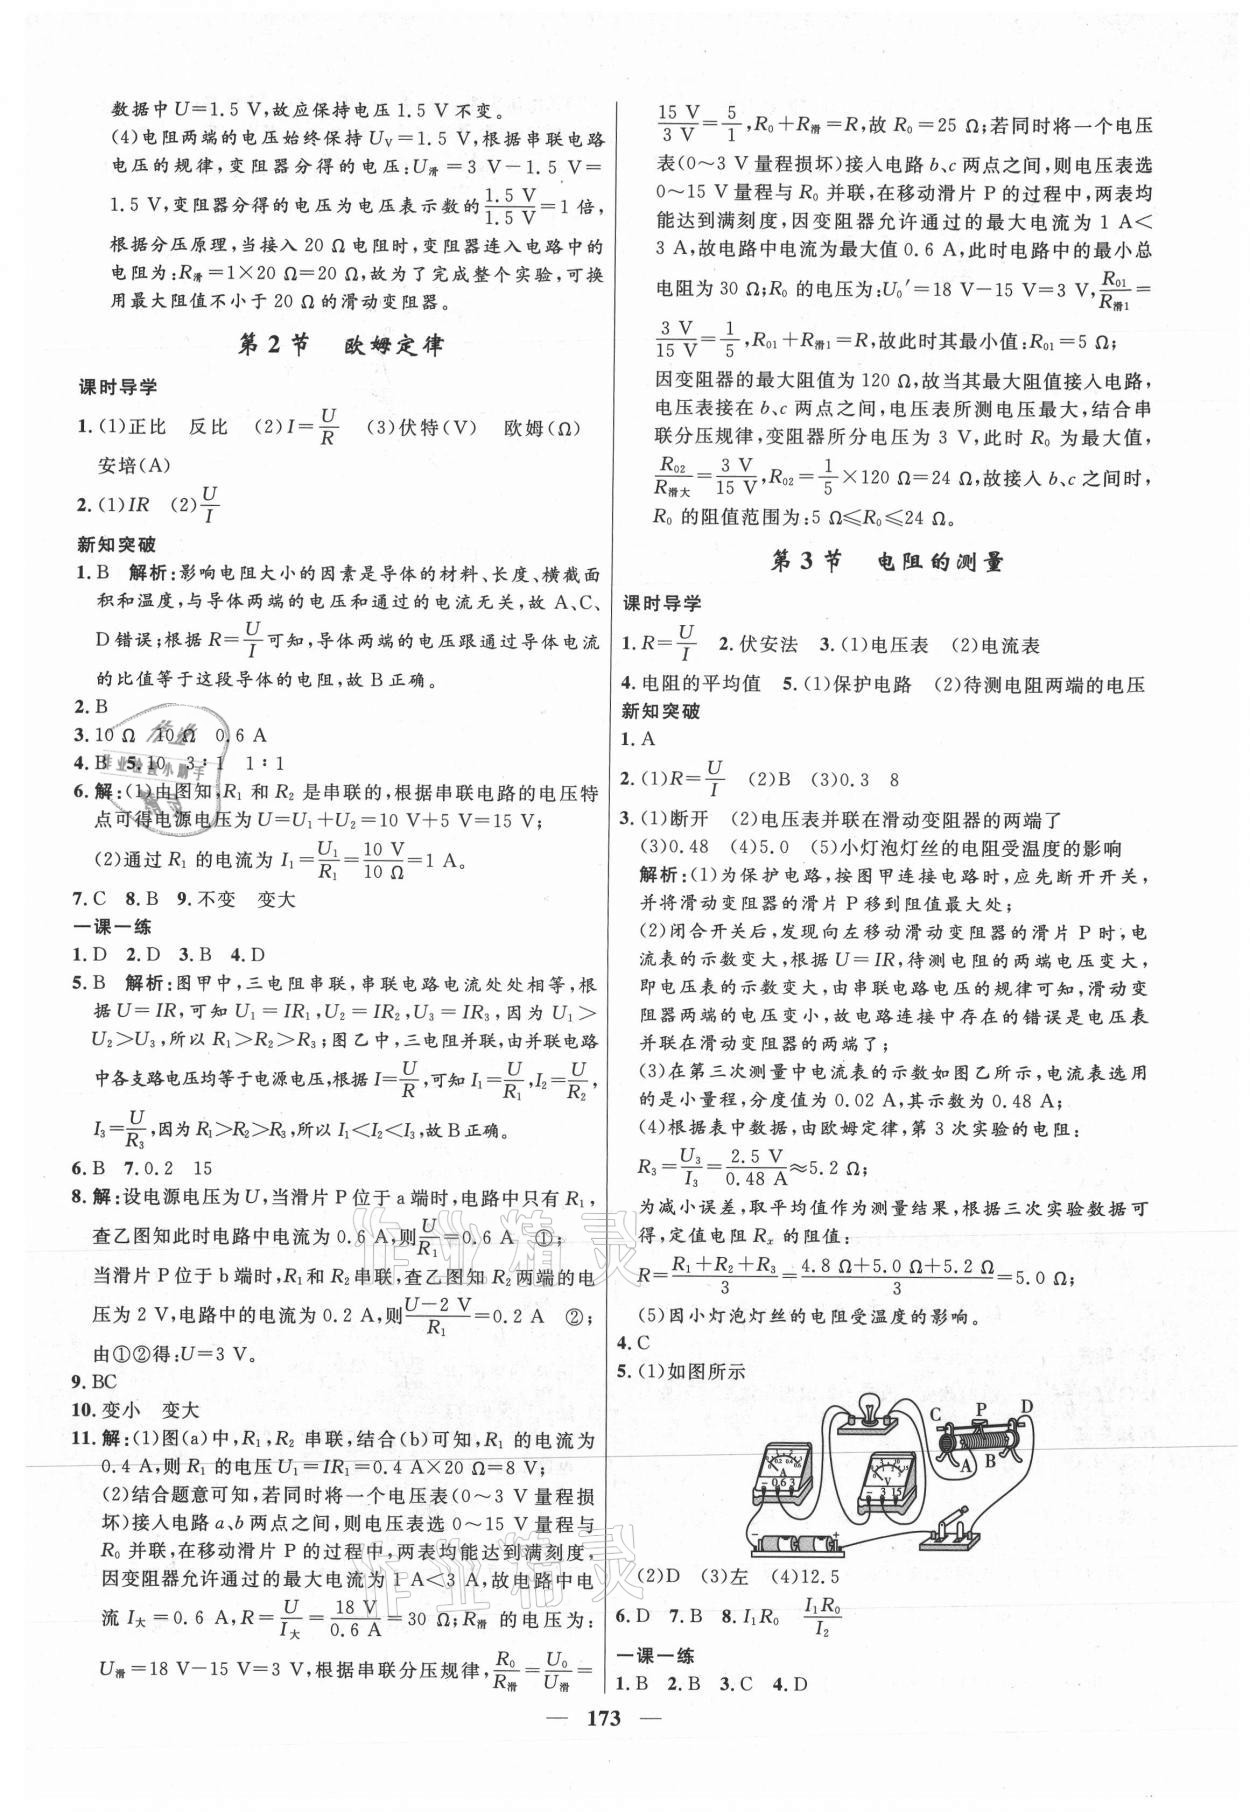 数据中U=1.5 V,故应保持电压1.5 V不变。
(4)电阻两端的电压始终保持 U_V=1.5 V,根据串联电路
电压的规律,变阻器分得的电压:U_滑=3 V-1.5 V=
1.5 V,变阻器分得的电压为电压表示数的1.5 V/1.5 V=1倍,
根据分压原理,当接入20 Ω电阻时,变阻器连入电路中的
电阻为:R_滑=1×20 Ω=20 Ω,故为了完成整个实验,可换
用最大阻值不小于20 Ω的滑动变阻器。
第2节 欧姆定律
课时导学
1.(1)正比 反比 (2)I=U/R (3)伏特(V) 欧姆(Ω)
安培(A)
2.(1)IR (2)U/I
新知突破
1.B 解析:影响电阻大小的因素是导体的材料、长度、横截面
积和温度,与导体两端的电压和通过的电流无关,故A、C、
D错误;根据R=U/I可知,导体两端的电压跟通过导体电流
的比值等于这段导体的电阻,故B正确。
2.B
3.10 Ω 10 Ω 0.6 A
4.B 5.10 3∶1 1∶1
6.解:(1)由图知,R₁和R₂是串联的,根据串联电路的电压特
点可得电源电压为U=U₁+U₂=10 V+5 V=15 V;
(2)通过R₁的电流为I₁=U₁/R₁=10 V/10 Ω=1 A。
7.C 8.B 9.不变 变大
一课一练
1.D 2.D 3.B 4.D
5.B 解析:图甲中,三电阻串联,串联电路电流处处相等,根
据U=IR,可知U₁=IR₁,U₂=IR₂,U₃=IR₃,因为U₁>
U₂>U₃,所以R₁>R₂>R₃;图乙中,三电阻并联,由并联电路
中各支路电压均等于电源电压,根据I=U/R,可知I₁=U/R₁,I₂=U/R₂,
I₃=U/R₃,因为R₁>R₂>R₃,所以I₁<I₂<I₃,故B正确。
6.B 7.0.2 15
8.解:设电源电压为U,当滑片P位于a端时,电路中只有R₁,
查乙图知此时电路中电流为0.6 A,则U/R₁=0.6 A ①;
当滑片P位于b端时,R₁和R₂串联,查乙图知R₂两端的电
压为2 V,电路中的电流为0.2 A,则(U-2 V)/R₁=0.2 A ②;
由①②得:U=3 V。
9.BC
10.变小 变大
11.解:(1)图(a)中,R₁,R₂串联,结合(b)可知,R₁的电流为
0.4 A,则R₁的电压U₁=IR₁=0.4 A×20 Ω=8 V;
(2)结合题意可知,若同时将一个电压表(0~3 V量程损
坏)接入电路a、b两点之间,则电压表选0~15 V量程与
R₀并联,在移动滑片P的过程中,两表均能达到满刻度,
因变阻器允许通过的最大电流为1 A<3 A,故电路中电
流I_大=0.6 A,R=U/I_大=18 V/0.6 A=30 Ω;R_滑的电压为:
U_滑=18 V-15 V=3 V,根据串联分压规律,R₀/R_滑=U₀/U_滑=
15 V/3 V=5/1,R₀+R_滑=R,故R₀=25 Ω;若同时将一个电压
表(0~3 V量程损坏)接入电路b、c两点之间,则电压表选
0~15 V量程与R₀并联,在移动滑片P的过程中,两表均
能达到满刻度,因变阻器允许通过的最大电流为1 A<
3 A,故电路中电流为最大值0.6 A,此时电路中的最小总
电阻为30 Ω;R₀的电压为:U₀′=18 V-15 V=3 V,R₀₁/R_滑1=
3 V/15 V=1/5,R₀₁+R_滑1=R,故此时其最小值:R₀₁=5 Ω;
因变阻器的最大阻值为120 Ω,故当其最大阻值接入电路,
电压表接在b、c两点之间,电压表所测电压最大,结合串
联分压规律,变阻器所分电压为3 V,此时R₀为最大值,
R₀₂/R_滑大=3 V/15 V,R₀₂=1/5×120 Ω=24 Ω,故接入b、c之间时,
R₀的阻值范围为:5 Ω≤R₀≤24 Ω。
第3节 电阻的测量
课时导学
1.R=U/I 2.伏安法 3.(1)电压表 (2)电流表
4.电阻的平均值 5.(1)保护电路 (2)待测电阻两端的电压
新知突破
1.A
2.(1)R=U/I (2)B (3)0.3 8
3.(1)断开 (2)电压表并联在滑动变阻器的两端了
(3)0.48 (4)5.0 (5)小灯泡灯丝的电阻受温度的影响
解析:(1)为保护电路,按图甲连接电路时,应先断开开关,
并将滑动变阻器的滑片P移到阻值最大处;
(2)闭合开关后,发现向左移动滑动变阻器的滑片P时,电
流表的示数变大,根据U=IR,待测电阻的两端电压变大,
即电压表的示数变大,由串联电路电压的规律可知,滑动变
阻器两端的电压变小,故电路连接中存在的错误是电压表
并联在滑动变阻器的两端了;
(3)在第三次测量中电流表的示数如图乙所示,电流表选用
的是小量程,分度值为0.02 A,其示数为0.48 A;
(4)根据表中数据,由欧姆定律,第3次实验的电阻:
R₃=U₃/I₃=2.5 V/0.48 A≈5.2 Ω;
为减小误差,取平均值作为测量结果,根据三次实验数据可
得,定值电阻Rₓ的阻值:
R=(R₁+R₂+R₃)/3=(4.8 Ω+5.0 Ω+5.2 Ω)/3=5.0 Ω;
(5)因小灯泡灯丝的电阻受温度的影响。
4.C
5.(1)如图所示
C P D
A B
A
- 0.6 3
V
- 3 15
- +
(2)D (3)左 (4)12.5
6.D 7.B 8.I₁R₀ I₁R₀/I₂
一课一练
1.B 2.B 3.C 4.D
— 173 —
作业精灵
作业精灵
作业
作业检查小助手